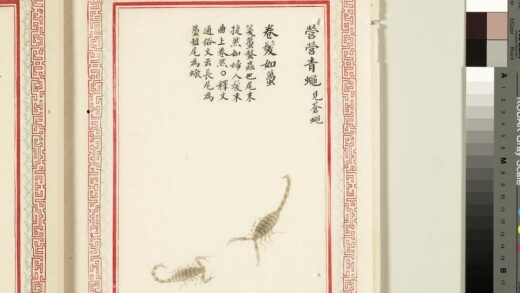 營營青蠅 見蒼蠅
卷髮如蠆
箋蠆螫蟲也尾末
揵然如婦人髮末
曲上卷然○釋文
通俗文云長尾為
蠆短尾為蠍
A
M
B